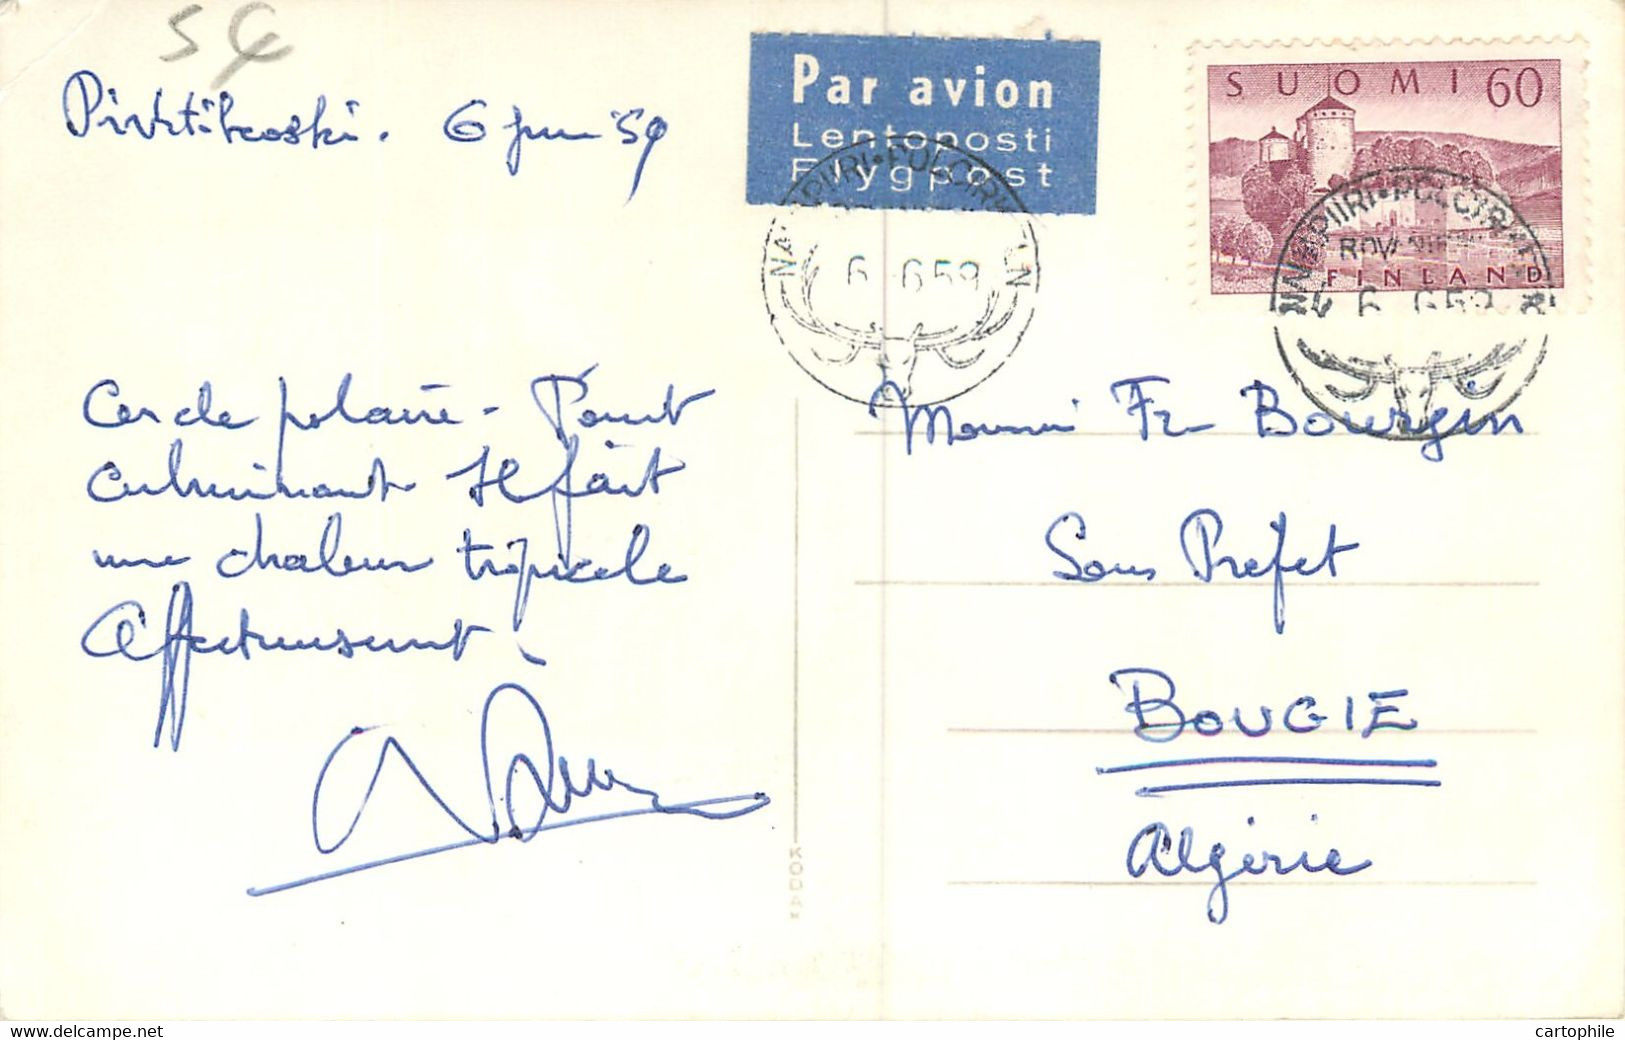 54
6 juin 59
Par avion
Lentoposti
Flygpost
SUOMI 60
FINLAND
NAPAPIIRI • POLCIRKELN
6. 6 59
NAPAPIIRI • POLCIRKELN
ROVANIEMI
6. 6 59
Cercle polaire - Point
culminant Il fait
une chaleur tropicale
Affectueusement.
Monsieur Fr Bourgin
Sous Prefet
BOUGIE
Algérie
KODAK
cartophile